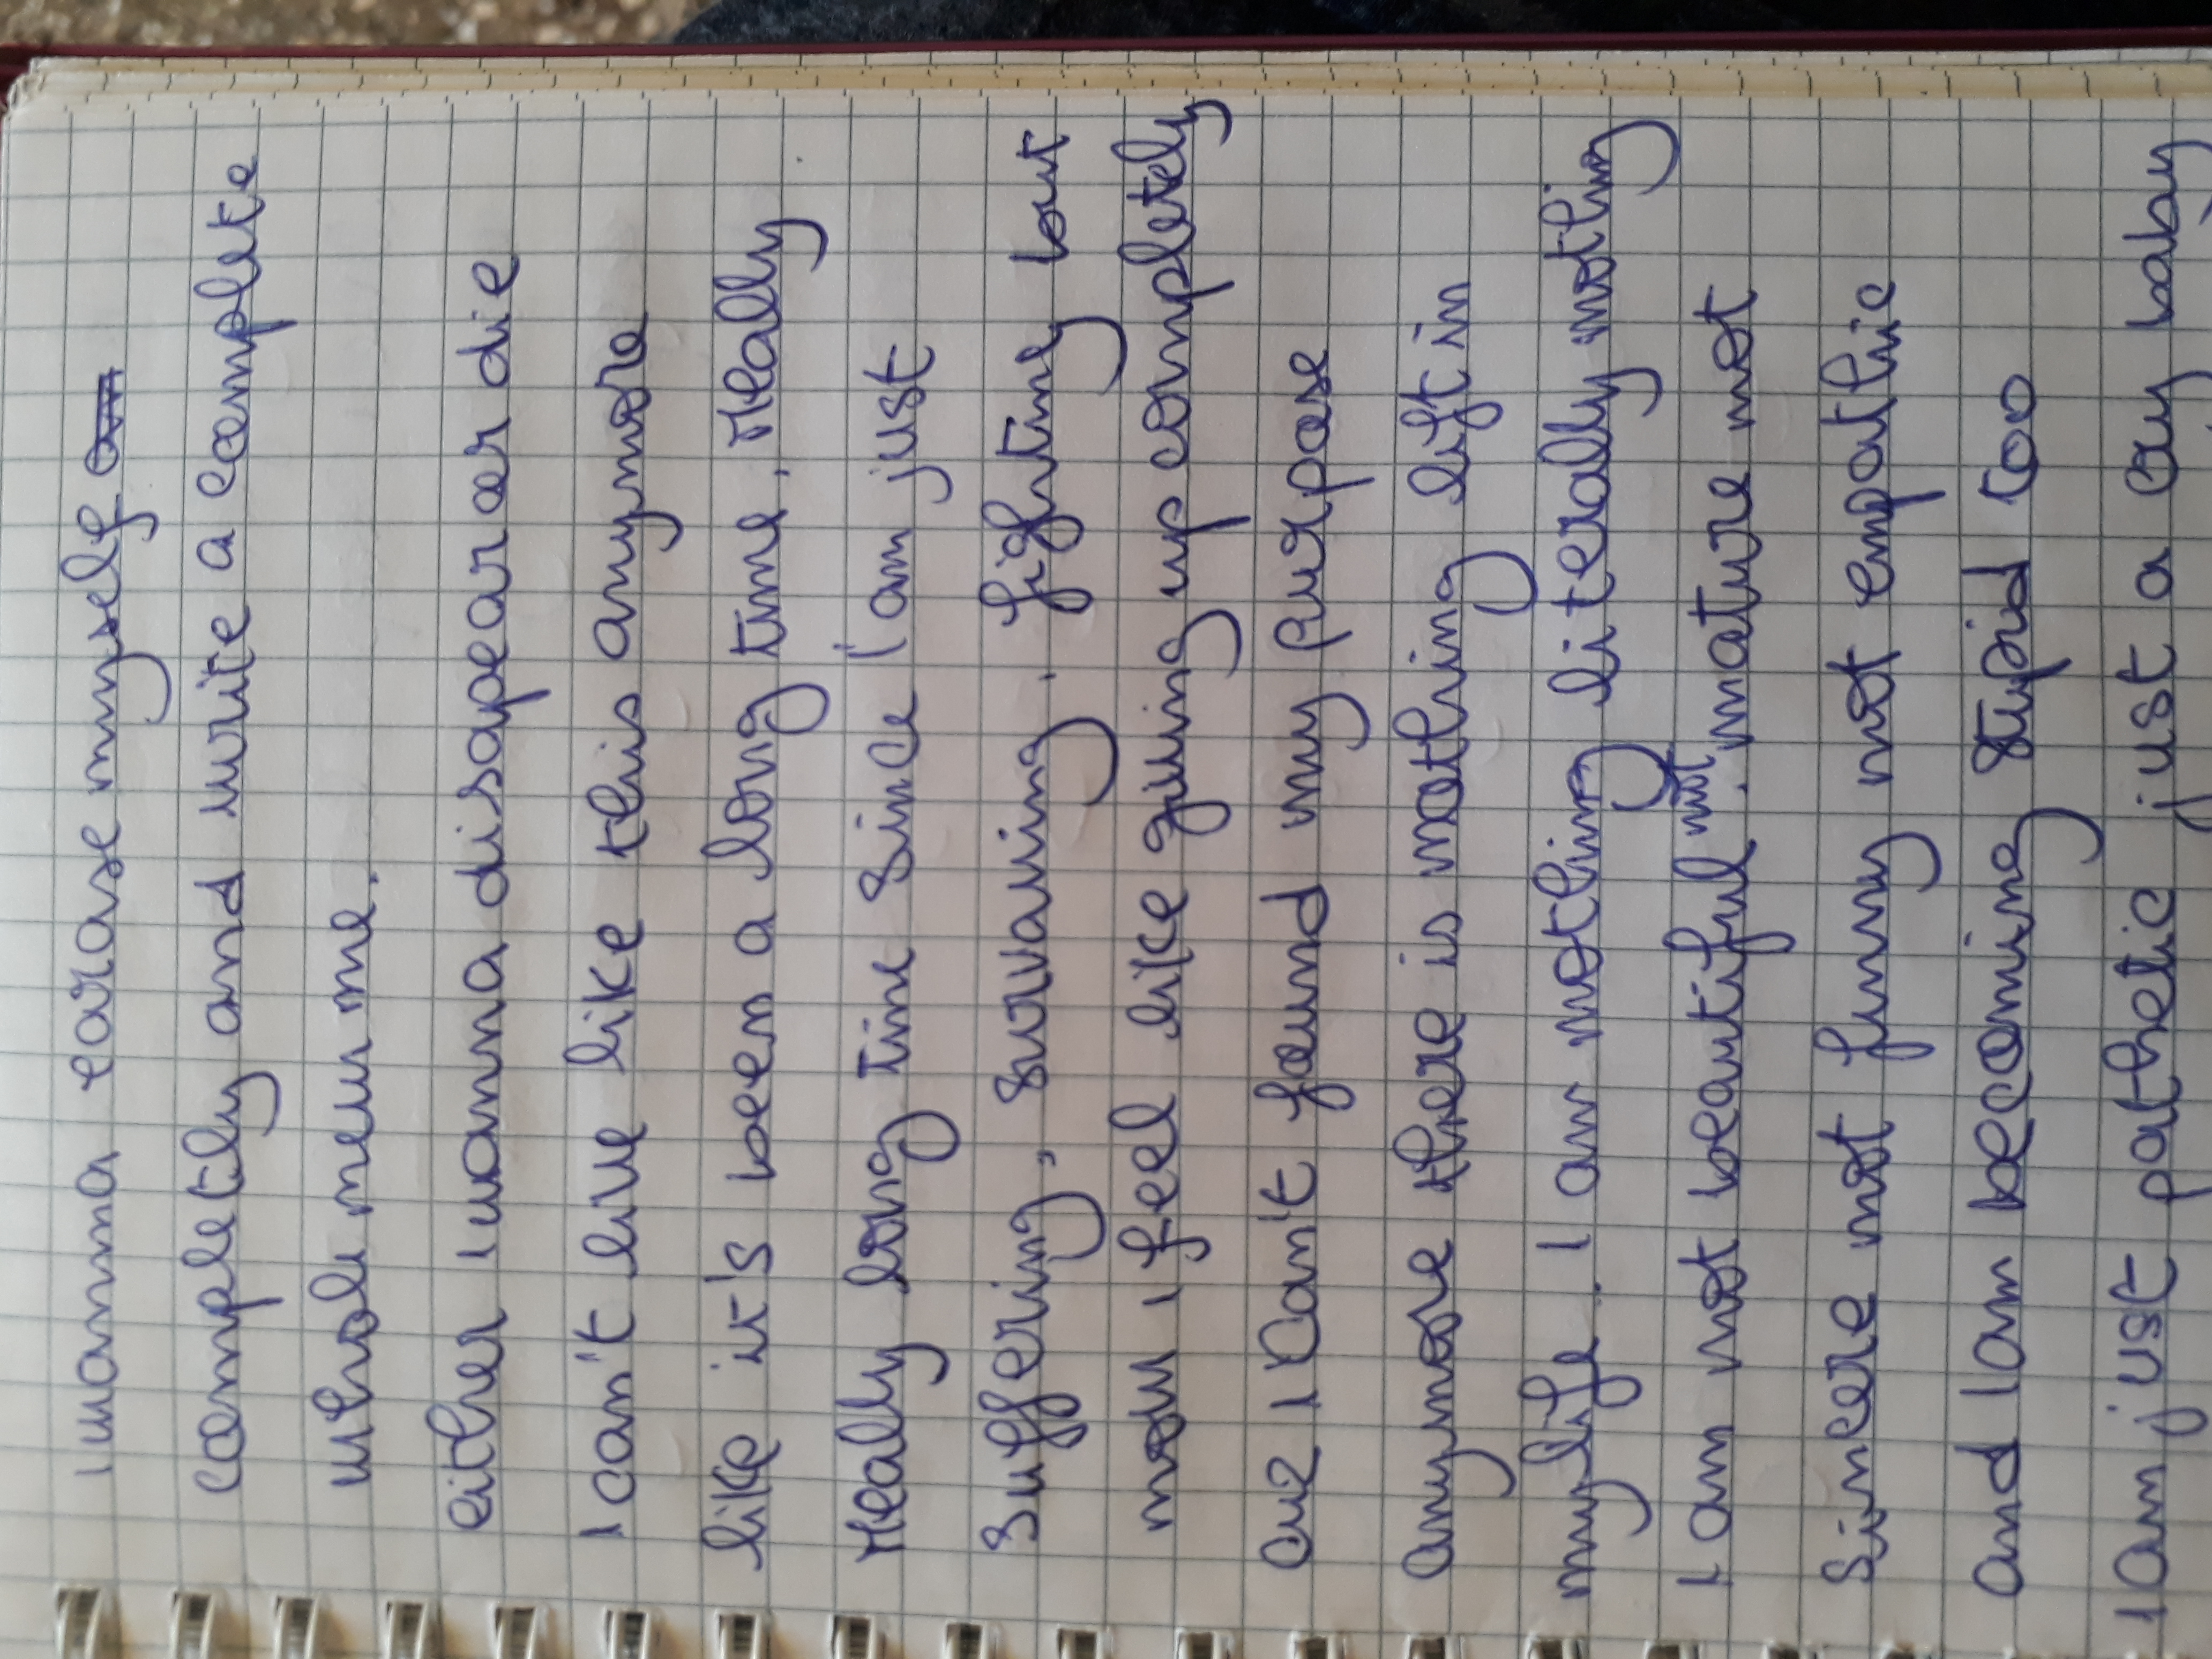 I wanna earase myself
completly and write a complete
whole new me.
either I wanna disapear or die
I can't live like this anymore
like it's been a long time, really
really long time since I'am just
suffering, survaving, fighting but
now I feel like giving up completely
cuz I can't found my purpose
anymore there is nothing left in
my life. I am nothing literally nothing
I am not beautiful not mature not
sincere not funny not empathic
and I am becoming stupid too
I am just pathetic just a cry baby